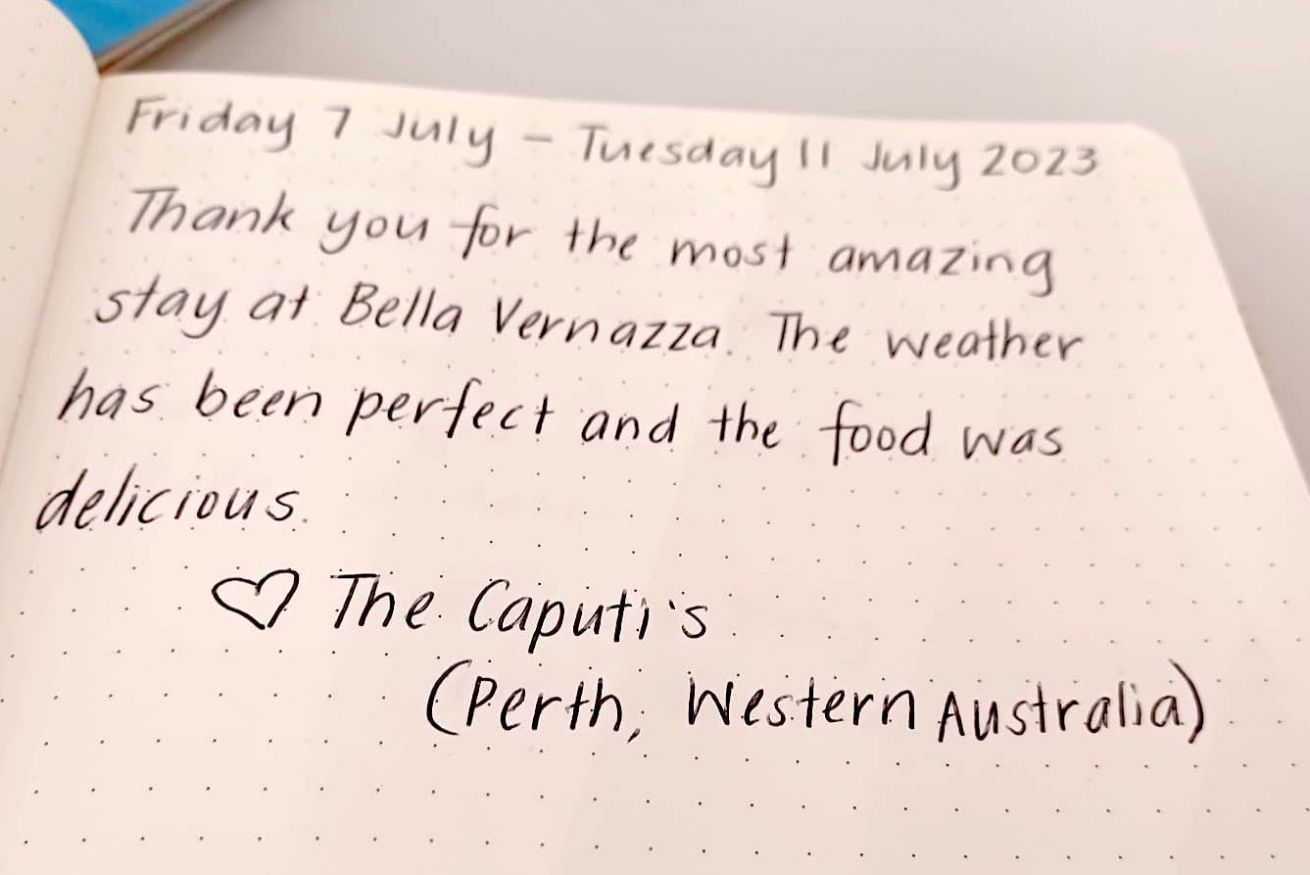 Friday 7 July – Tuesday 11 July 2023
Thank you for the most amazing
stay at Bella Vernazza. The weather
has been perfect and the food was
delicious.
♡ The Caputi's
(Perth, Western Australia)